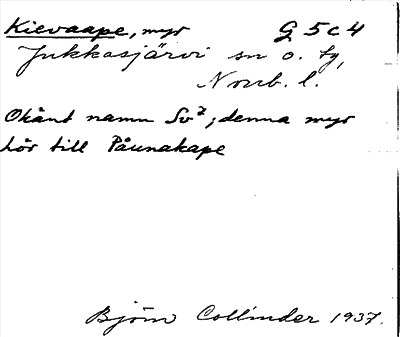 Kievaape, myr G 5 c 4
Jukkasjärvi sn o. tg,
Norrb. l.
Okänt namn Sv⁷; denna myr
hör till Påunakape
Björn Collinder 1937.